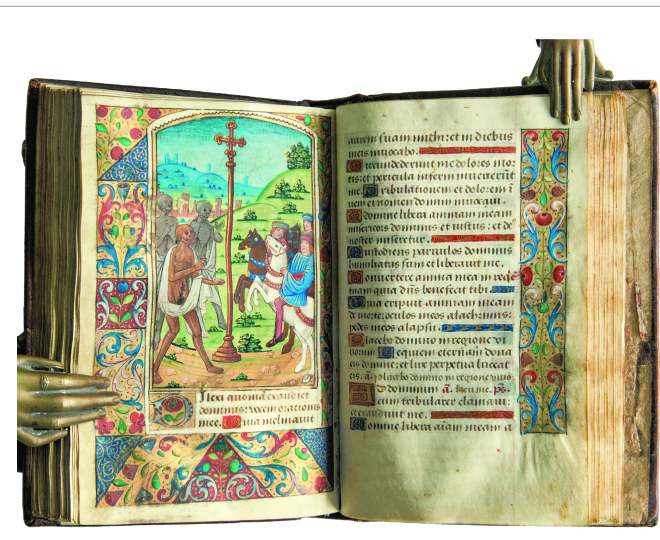 ilexi quoniā exaudiet
dominus: vocem orationis
mee. Quia inclinavit
aurem suam michi: et in diebus
meis invocabo.
Circundederunt me dolores mor
tis: et pericula inferni invenerūt
me. Tribulationem et dolorem ī
veni et nomen domini invoqui.
O domine libera animam meam
misericors dominus et iustus: et de
noster miseretur.
Custodiens parvulos dominus
humiliatus sum et liberavit me.
Convertere anima mea in req
tuam quia dn̄s benefecit tibi.
Quia eripuit animam meam
de morte: oculos meos a lachrimis:
pedes meos a lapsu.
Placebo domino in regione vi
vorum Requiem eternam dona
eis domine: et lux perpetua luceat
eis. a. placebo domino in regione
ad dominum me. ps.
cum tribularer clamavi:
et exaudivit me.
Domine libera aīam meam a